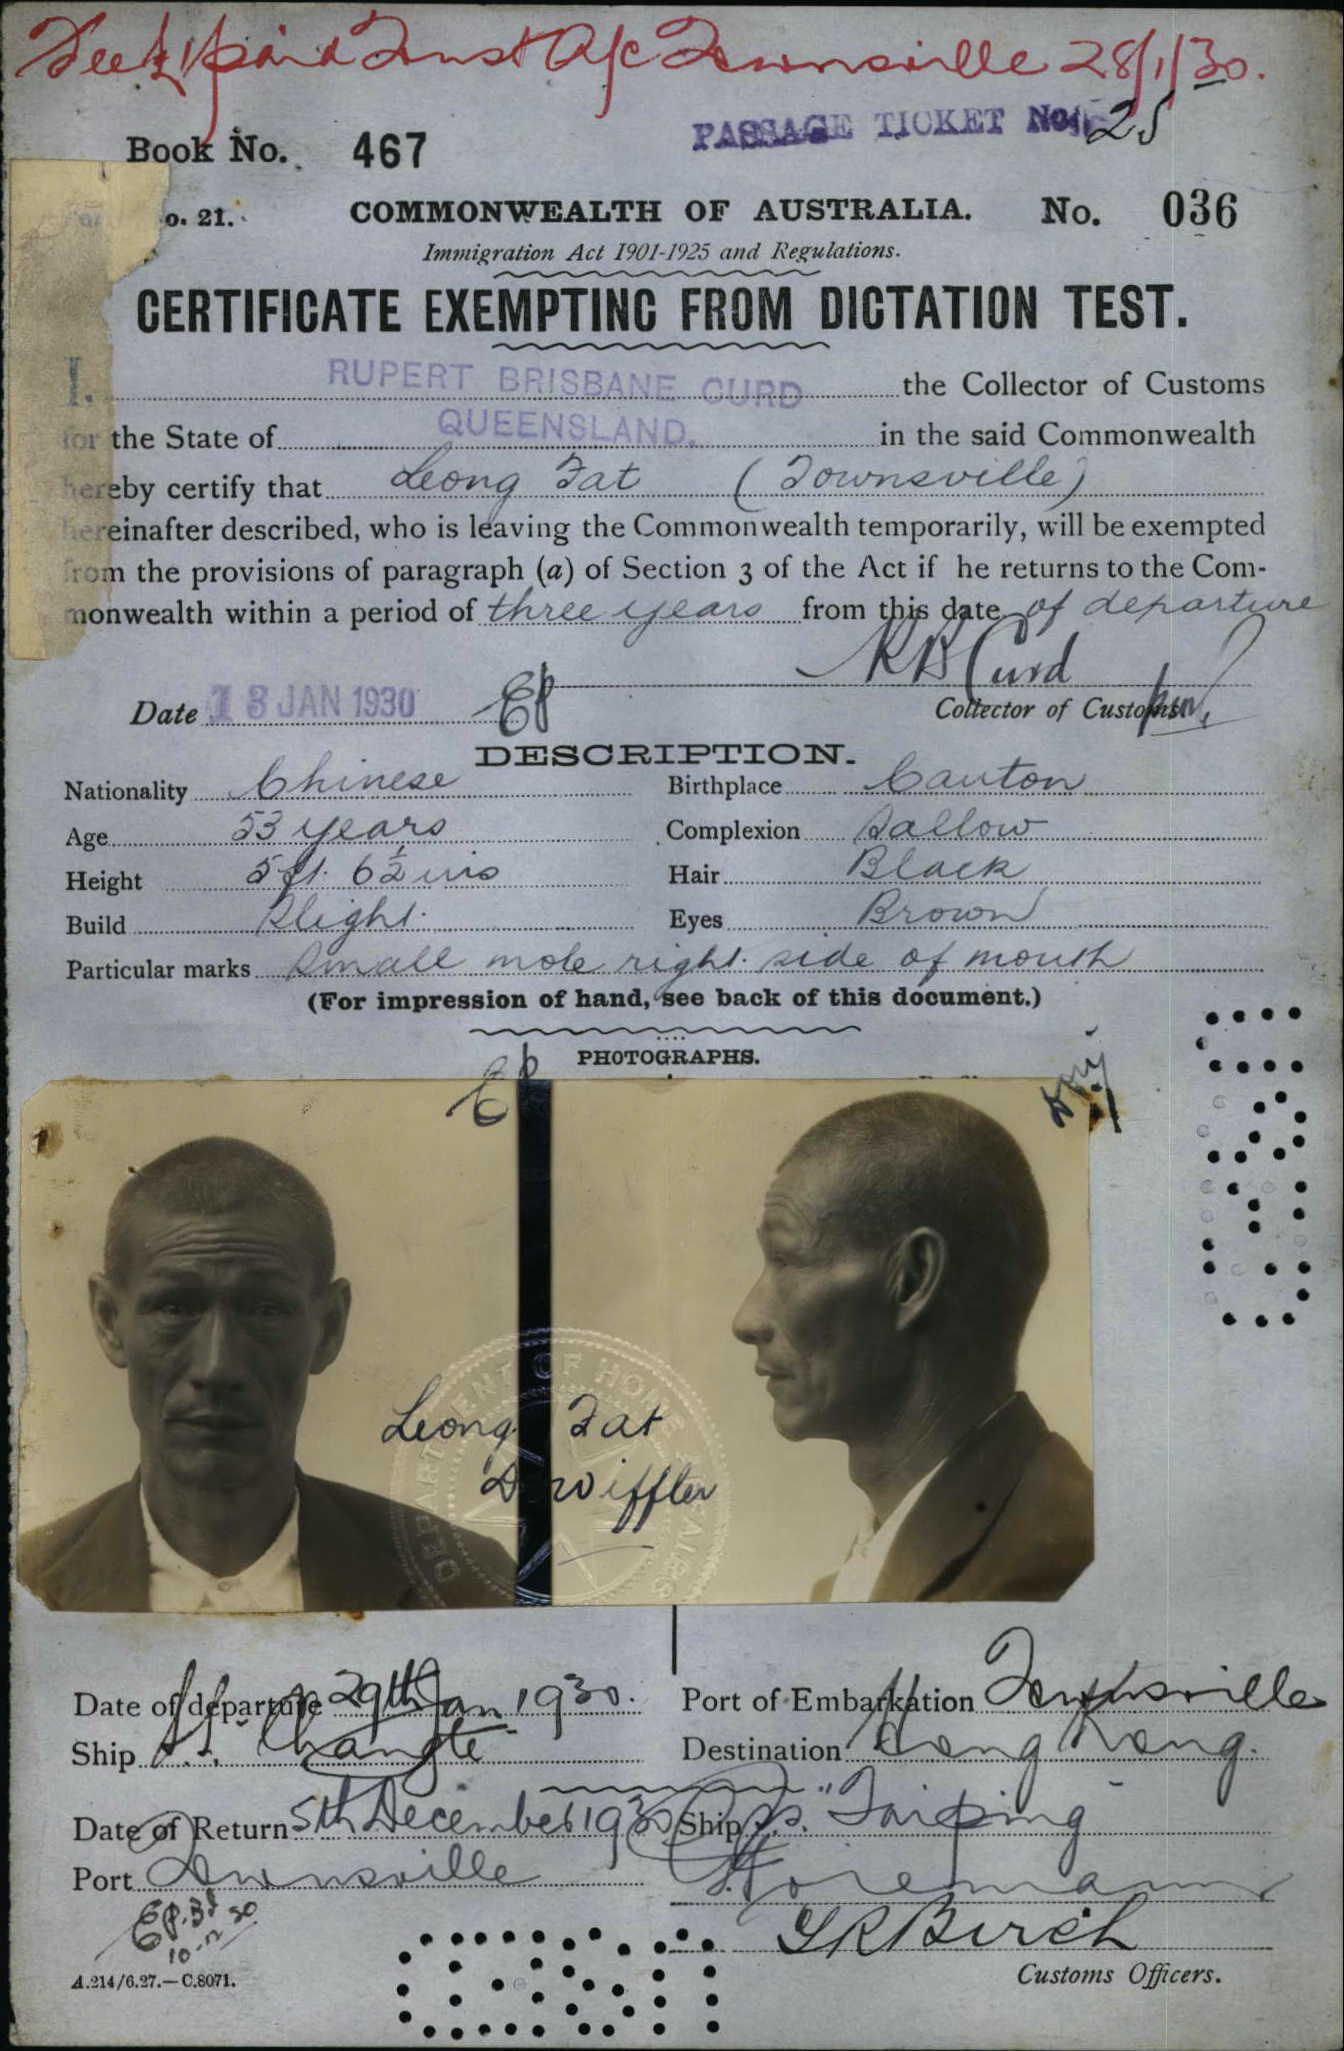 Fee £1 paid Trust A/c Townsville 28/1/30.
PASSAGE TICKET No. 25
Book No. 467
o. 21.
COMMONWEALTH OF AUSTRALIA. No. 036
Immigration Act 1901-1925 and Regulations.
CERTIFICATE EXEMPTING FROM DICTATION TEST.
I. RUPERT BRISBANE CURD the Collector of Customs
for the State of QUEENSLAND. in the said Commonwealth
hereby certify that Leong Fat (Townsville)
hereinafter described, who is leaving the Commonwealth temporarily, will be exempted
from the provisions of paragraph (a) of Section 3 of the Act if he returns to the Com-
monwealth within a period of three years from this date of departure
R B Curd
Date 13 JAN 1930
Collector of Customs.
DESCRIPTION.
Nationality Chinese Birthplace Canton
Age 53 years Complexion Sallow
Height 5 ft. 6½ ins Hair Black
Build Slight. Eyes Brown
Particular marks Small mole right side of mouth
(For impression of hand, see back of this document.)
PHOTOGRAPHS.
DEPARTMENT OF HOME
Leong Fat
Wiffler
Date of departure 29th Jan. 1930. Port of Embarkation Townsville
Ship S.S. Changte Destination Hong Kong.
Date of Return 5th December 1930 Ship S.S. "Taiping
Port Townsville
G R Birch
10-12-30
A.214/6.27.—C.8071.
Customs Officers.